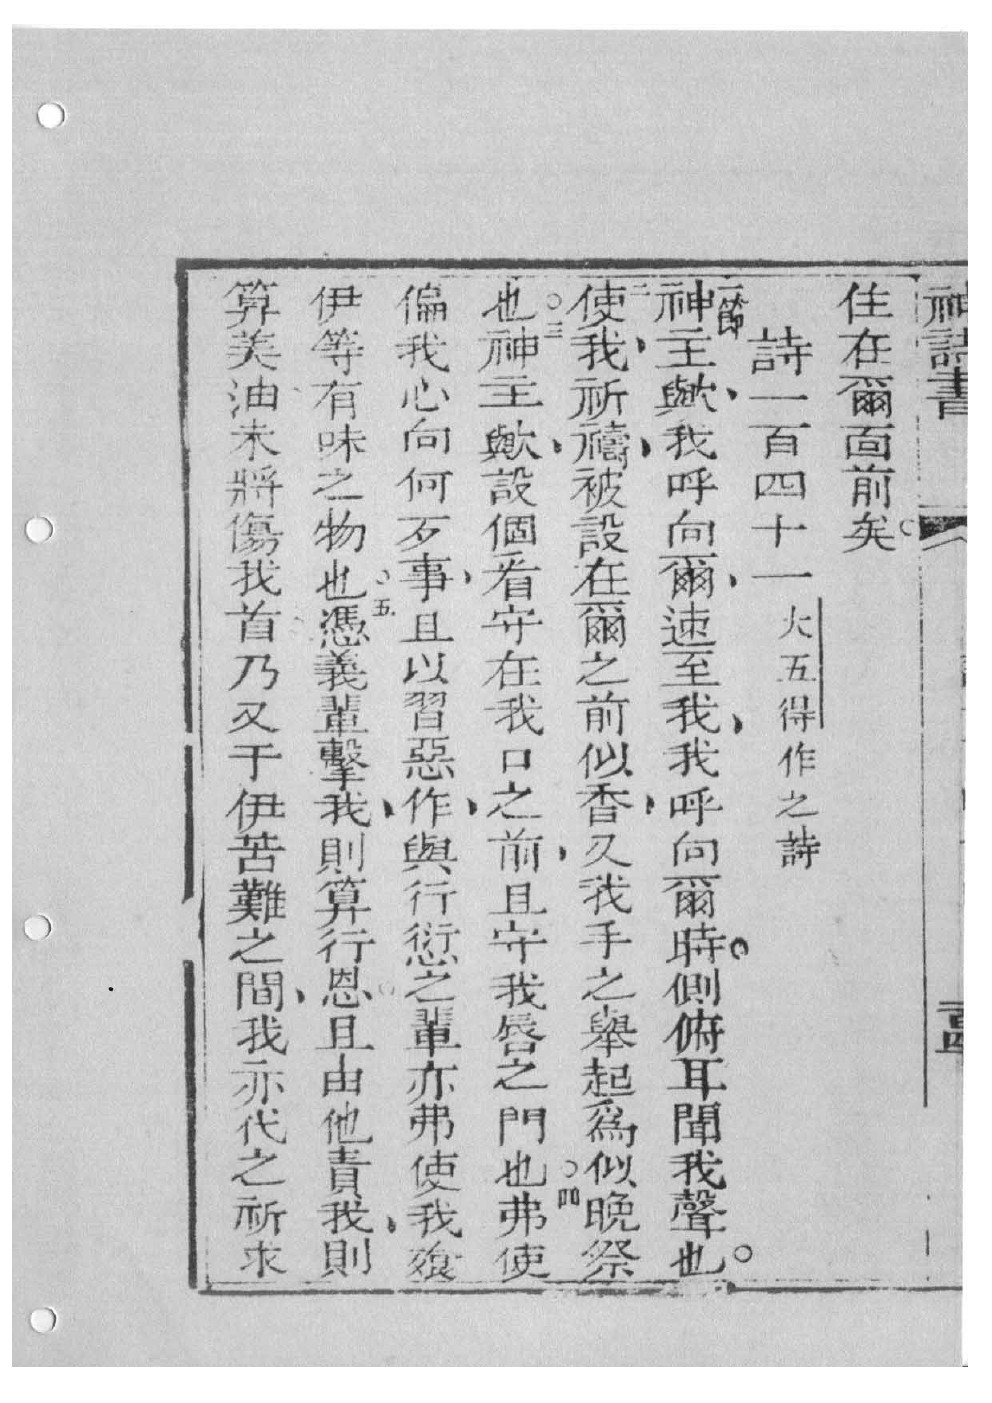 神詩書
住在爾面前矣。
詩一百四十一 大五得作之詩
一節神主歟、我呼向爾、速至我、我呼向爾時。側俯耳聞我聲也。
二使我、祈禱、被設在爾之前似香、又我手之舉起爲似晚祭
也○三神主歟、設個看守在我口之前、且守我唇之門也○四弗使
偏我心向何歹事、且以習惡作、與行愆之輩亦弗使我飱
伊等有味之物也○五憑義輩擊我、則算行恩且由他責我、則
算美油未將傷我首乃又于伊苦難之間、我亦代之祈求